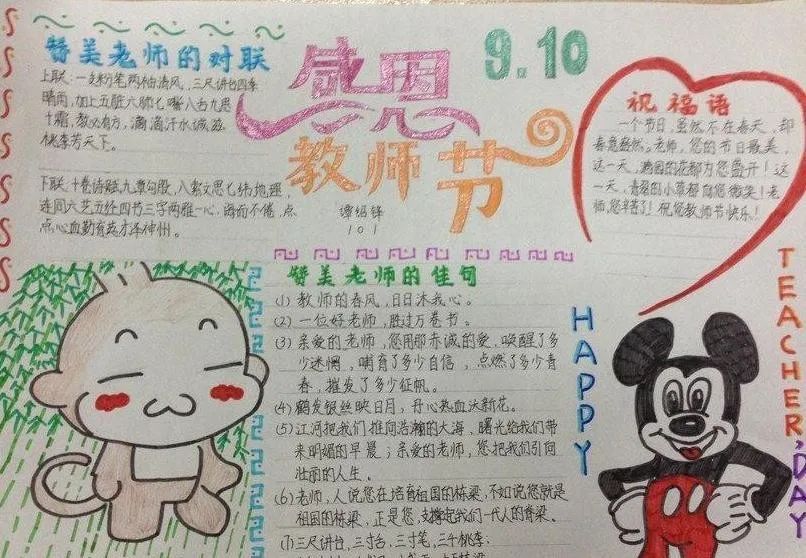 赞美老师的对联
上联:一支粉笔两袖清风,三尺讲台四季
晴雨,加上五脏六腑七嘴八舌九思
十霜,教必有方,滴滴汗水诚滋
桃李芳天下。
下联:十卷诗赋九章勾股,八索文思七纬地理,
连同六艺五经四节三字两雅一心,诲而不倦,点
点心血勤育英才泽神州。
感恩
教师节
9.10
101
祝福语
一个节日,虽然不在春天,却
春意盎然。老师,您的节日最美,
这一天,满园的花都为您盛开!这
一天,青翠的小草都向您微笑!老
师,您辛苦了!祝您教师节快乐!
赞美老师的佳句
(1)教师的春风,日日沐我心。
(2)一位好老师,胜过万卷书。
(3)亲爱的老师,您用那赤诚的爱,唤醒了多
少迷惘,哺育了多少自信,点燃了多少青
春,摧发了多少征帆。
(4)鹤发银丝映日月,丹心热血沃新花。
(5)江河把我们推向浩瀚的大海,曙光给我们带
来明媚的早晨;亲爱的老师,您把我们引向
壮丽的人生。
(6)老师,人说您在培育祖国的栋梁,不如说您就是
祖国的栋梁,正是您,支撑起我们一代人的脊梁。
(7)三尺讲台,三寸舌,三寸笔,三千桃李;
HAPPY
TEACHER,DAY